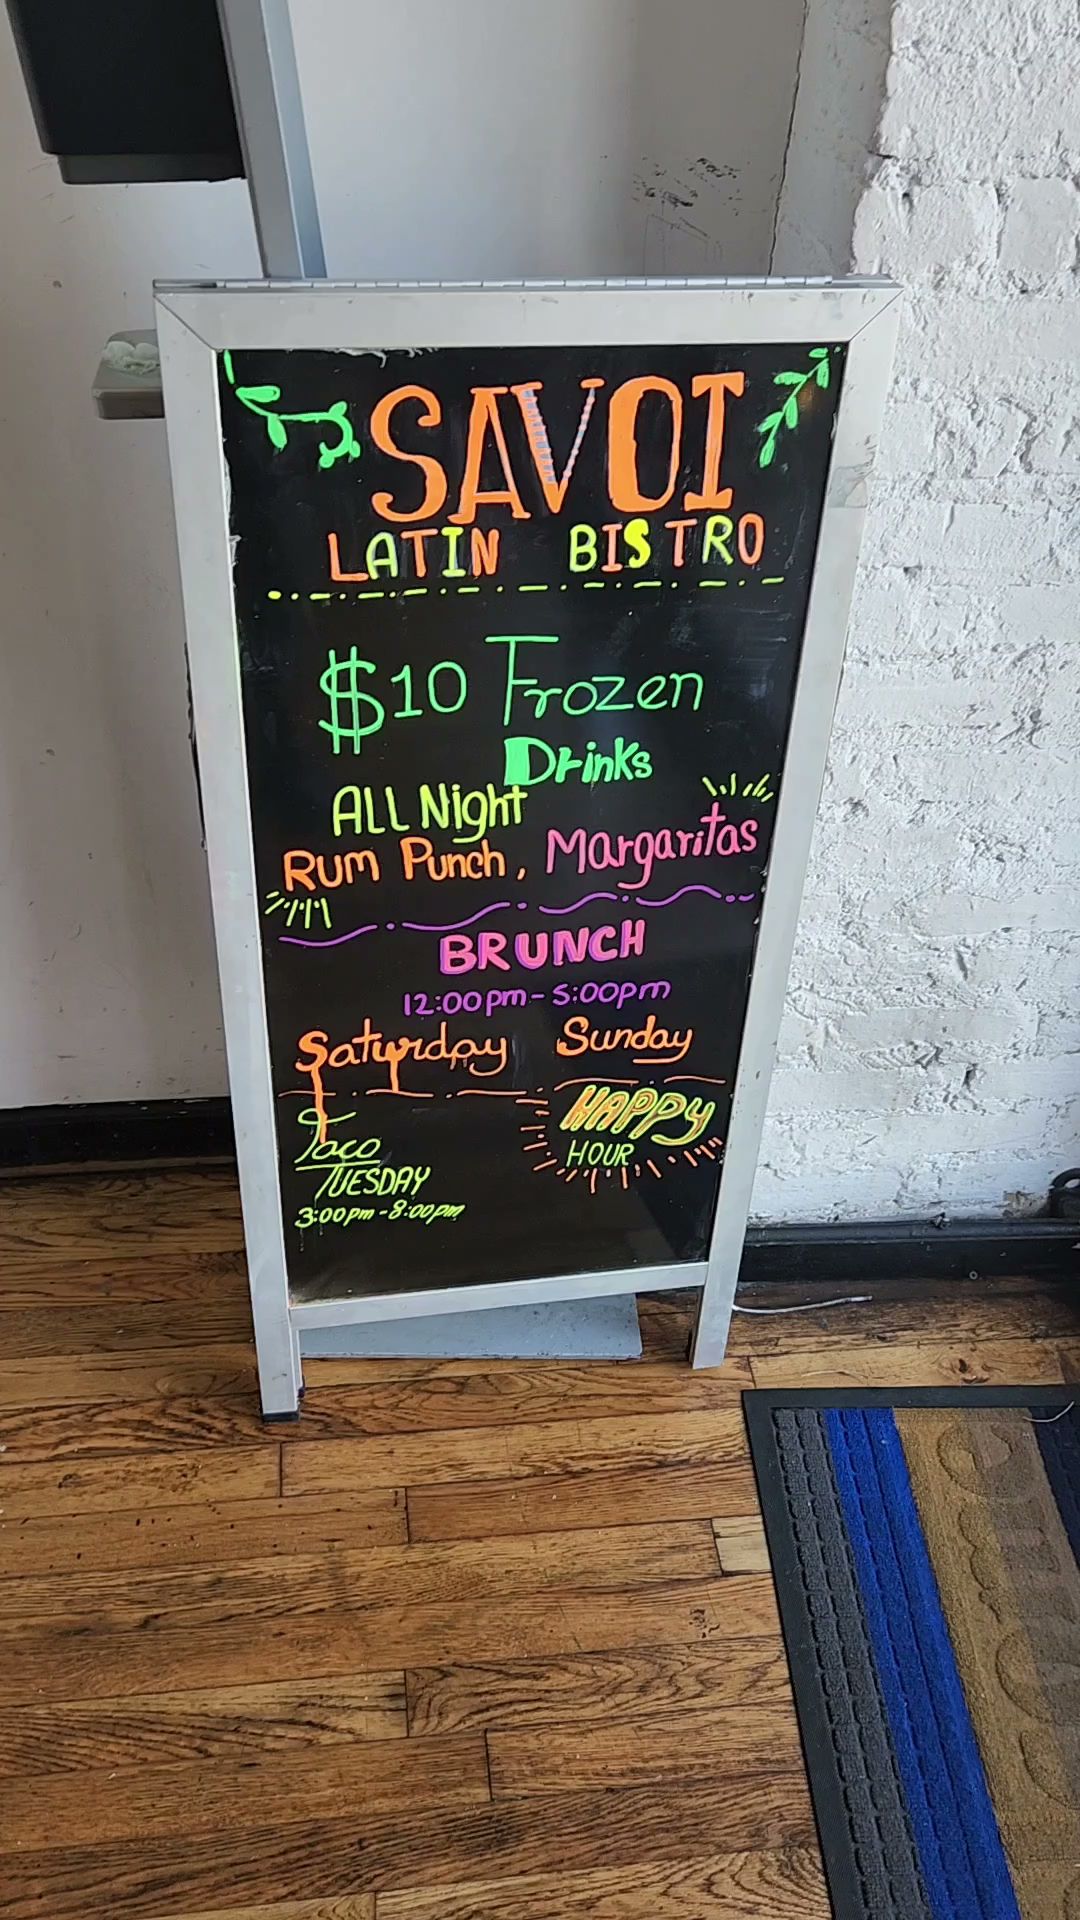 SAVOI
LATIN BISTRO
$10 Frozen
Drinks
ALL Night
RUM Punch, Margaritas
BRUNCH
12:00pm - 5:00pm
Saturday Sunday
Taco
TUESDAY
3:00pm - 8:00pm
HAPPY
HOUR